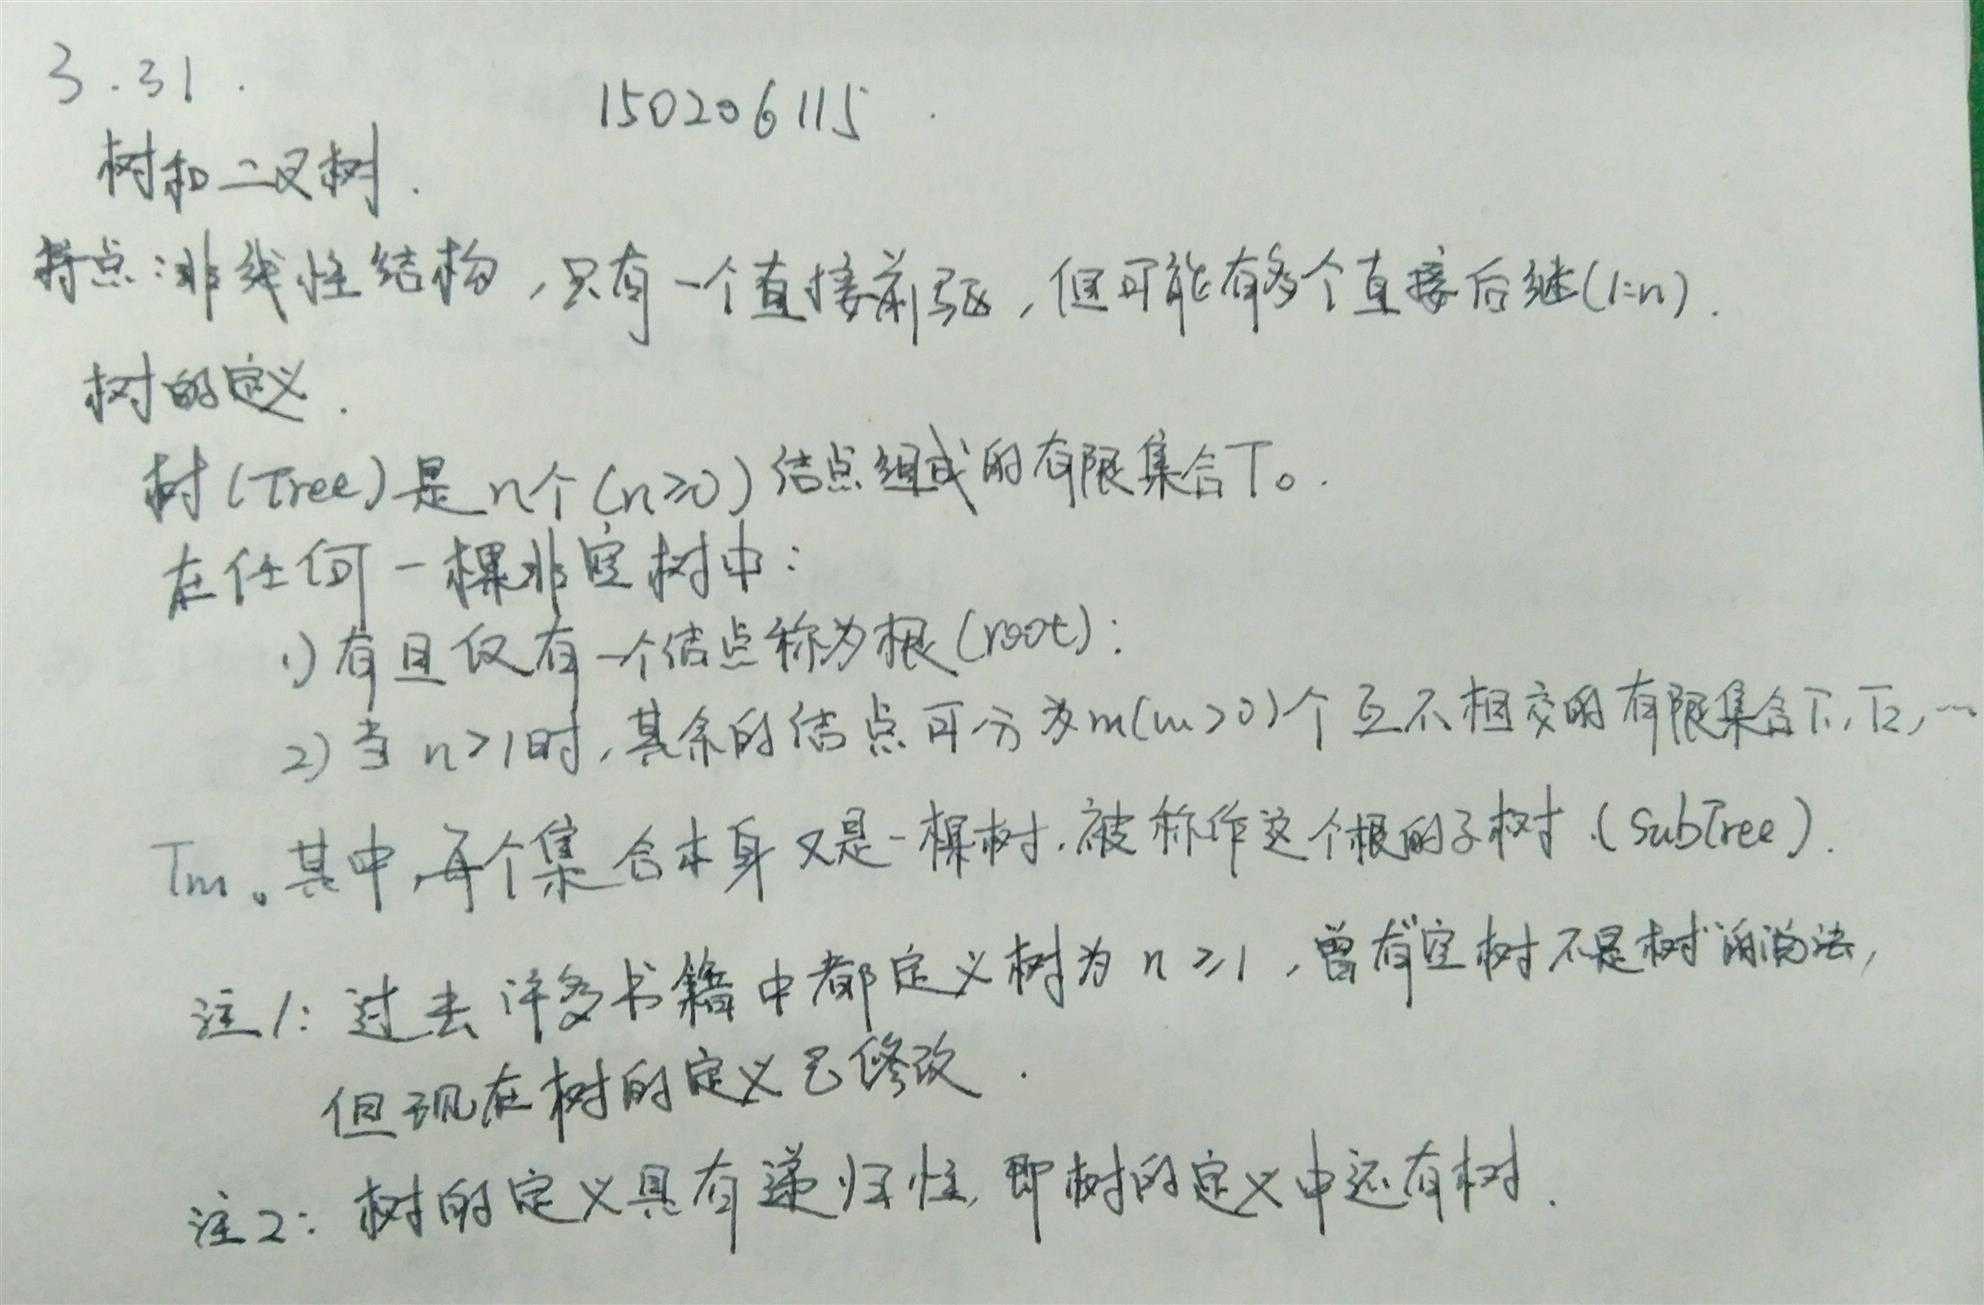 3.31.
150206115.
树和二叉树.
特点:非线性结构,只有一个直接前驱,但可能有多个直接后继(1:n).
树的定义.
树(Tree)是n个(n≥0)结点组成的有限集合T。.
在任何一棵非空树中:
1)有且仅有一个结点称为根(root):
2)当n>1时,其余的结点可分为m(m>0)个互不相交的有限集合T1,T2,…
Tm。其中,每个集合本身又是一棵树.被称作这个根的子树.(SubTree).
注1:过去许多书籍中都定义树为n≥1,曾有"空树不是树"的说法,
但现在树的定义已修改.
注2:树的定义具有递归性,即树的定义中还有树.